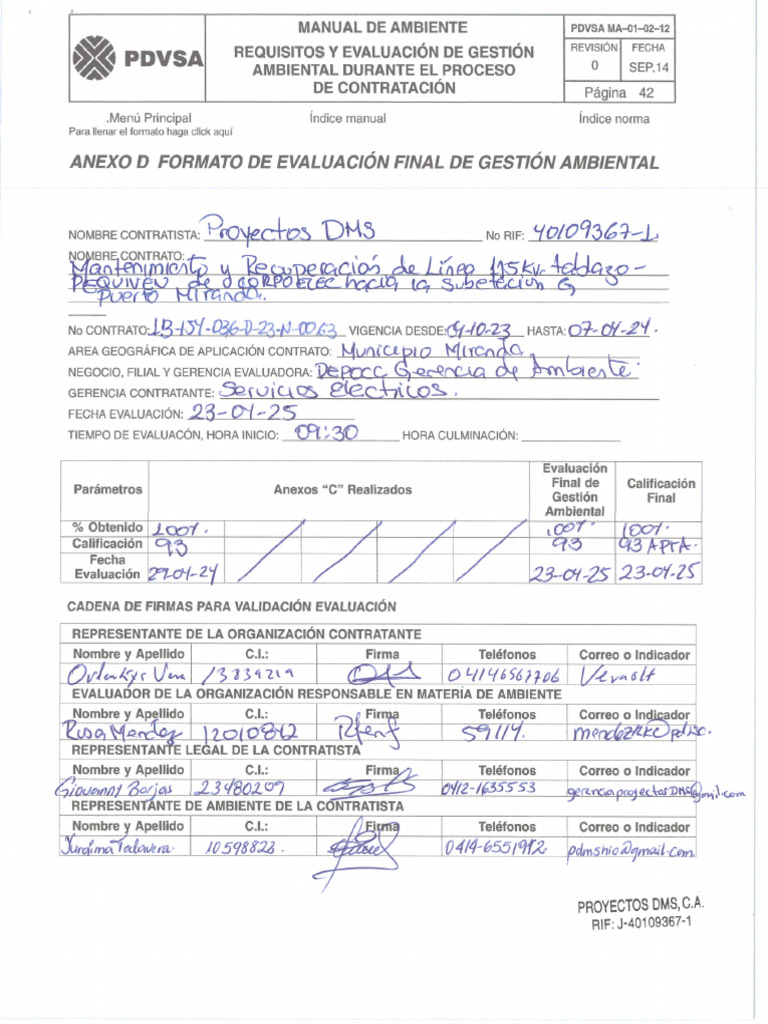 PDVSA
MANUAL DE AMBIENTE
REQUISITOS Y EVALUACIÓN DE GESTIÓN
AMBIENTAL DURANTE EL PROCESO
DE CONTRATACIÓN
PDVSA MA–01–02–12
REVISIÓN FECHA
0 SEP.14
Página 42
.Menú Principal Índice manual Índice norma
Para llenar el formato haga click aquí
ANEXO D FORMATO DE EVALUACIÓN FINAL DE GESTIÓN AMBIENTAL
NOMBRE CONTRATISTA: Proyectos DMS No RIF: 40109367-1.
NOMBRE CONTRATO:
Mantenimiento y Recuperación de Línea 115Kv
PEQUIVEN de hacia la
Puerto Miranda.
No CONTRATO: 1B-154-036-D-23-N-0063 VIGENCIA DESDE: -10-23 HASTA: 07-04-24.
AREA GEOGRÁFICA DE APLICACIÓN CONTRATO: Municipio Miranda
NEGOCIO, FILIAL Y GERENCIA EVALUADORA: DEPOCC Gerencia de Ambiente.
GERENCIA CONTRATANTE: Servicios Electricos.
FECHA EVALUACIÓN: 23-04-25
TIEMPO DE EVALUACÓN, HORA INICIO: 09:30 HORA CULMINACIÓN:
Parámetros Anexos “C” Realizados Evaluación Final de Gestión Ambiental Calificación Final
% Obtenido 100%. 100%. 100%.
Calificación 93 93 93 APTA.
Fecha Evaluación 29-04-24 23-04-25 23-04-25
CADENA DE FIRMAS PARA VALIDACIÓN EVALUACIÓN
REPRESENTANTE DE LA ORGANIZACIÓN CONTRATANTE
Nombre y Apellido C.I.: Firma Teléfonos Correo o Indicador
13839219 04146567706
EVALUADOR DE LA ORGANIZACIÓN RESPONSABLE EN MATERÍA DE AMBIENTE
Nombre y Apellido C.I.: Firma Teléfonos Correo o Indicador
Rosa Mendez 12010842 59114.
REPRESENTANTE LEGAL DE LA CONTRATISTA
Nombre y Apellido C.I.: Firma Teléfonos Correo o Indicador
Giovanny Borjas 23480209 0412-1635553 gerenciaproyectosDMS@gmil.com
REPRESENTANTE DE AMBIENTE DE LA CONTRATISTA
Nombre y Apellido C.I.: Firma Teléfonos Correo o Indicador
Talavera. 10598823. 0414-6551942 @gmail.com
PROYECTOS DMS, C.A.
RIF: J-40109367-1